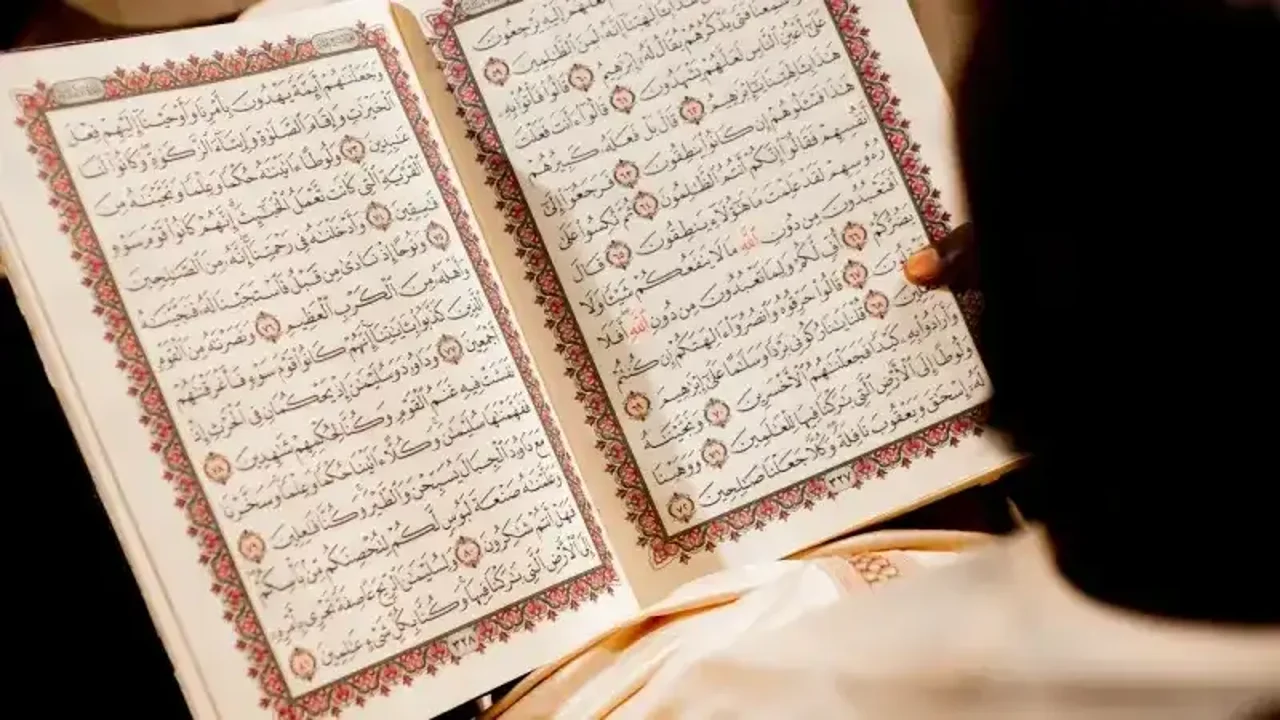 إِلَيْهِ يَرْجِعُونَ
بِـَٔالِهَتِنَآ إِنَّهُۥ لَمِنَ ٱلظَّٰلِمِينَ
٥٩ سَمِعْنَا فَتًى يَذْكُرُهُمْ يُقَالُ لَهُۥٓ إِبْرَٰهِيمُ ٦٠ قَالُوا۟ فَأْتُوا۟ بِهِۦ
عَلَىٰٓ أَعْيُنِ ٱلنَّاسِ لَعَلَّهُمْ يَشْهَدُونَ ٦١ قَالُوٓا۟ ءَأَنتَ فَعَلْتَ
هَٰذَا بِـَٔالِهَتِنَا يَٰٓإِبْرَٰهِيمُ ٦٢ قَالَ بَلْ فَعَلَهُۥ كَبِيرُهُمْ
هَٰذَا فَسْـَٔلُوهُمْ إِن كَانُوا۟ يَنطِقُونَ ٦٣ فَرَجَعُوٓا۟ إِلَىٰٓ
أَنفُسِهِمْ فَقَالُوٓا۟ إِنَّكُمْ أَنتُمُ ٱلظَّٰلِمُونَ ٦٤ ثُمَّ نُكِسُوا۟ عَلَىٰ
رُءُوسِهِمْ لَقَدْ عَلِمْتَ مَا هَٰٓؤُلَآءِ يَنطِقُونَ ٦٥ قَالَ
أَفَتَعْبُدُونَ مِن دُونِ ٱللَّهِ مَا لَا يَنفَعُكُمْ شَيْـًٔا وَلَا
يَضُرُّكُمْ ٦٦ أُفٍّ لَّكُمْ وَلِمَا تَعْبُدُونَ مِن دُونِ ٱللَّهِ أَفَلَا
٦٧ قَالُوا۟ حَرِّقُوهُ وَٱنصُرُوٓا۟ ءَالِهَتَكُمْ إِن كُنتُمْ
٦٨ قُلْنَا يَٰنَارُ كُونِى بَرْدًا وَسَلَٰمًا عَلَىٰٓ إِبْرَٰهِيمَ ٦٩
وَأَرَادُوا۟ بِهِۦ كَيْدًا فَجَعَلْنَٰهُمُ ٱلْأَخْسَرِينَ ٧٠ وَنَجَّيْنَٰهُ
وَلُوطًا إِلَى ٱلْأَرْضِ ٱلَّتِى بَٰرَكْنَا فِيهَا لِلْعَٰلَمِينَ ٧١ وَوَهَبْنَا
لَهُۥٓ إِسْحَٰقَ وَيَعْقُوبَ نَافِلَةً وَكُلًّا جَعَلْنَا صَٰلِحِينَ ٧٢
٣٢٧
وَجَعَلْنَٰهُمْ أَئِمَّةً يَهْدُونَ بِأَمْرِنَا وَأَوْحَيْنَآ إِلَيْهِمْ فِعْلَ
ٱلْخَيْرَٰتِ وَإِقَامَ ٱلصَّلَوٰةِ وَإِيتَآءَ ٱلزَّكَوٰةِ وَكَانُوا۟ لَنَا
عَٰبِدِينَ ٧٣ وَلُوطًا ءَاتَيْنَٰهُ حُكْمًا وَعِلْمًا وَنَجَّيْنَٰهُ مِنَ
ٱلْقَرْيَةِ ٱلَّتِى كَانَت تَّعْمَلُ ٱلْخَبَٰٓئِثَ إِنَّهُمْ كَانُوا۟ قَوْمَ سَوْءٍ
فَٰسِقِينَ ٧٤ وَأَدْخَلْنَٰهُ فِى رَحْمَتِنَآ إِنَّهُۥ مِنَ ٱلصَّٰلِحِينَ
٧٥ وَنُوحًا إِذْ نَادَىٰ مِن قَبْلُ فَٱسْتَجَبْنَا لَهُۥ فَنَجَّيْنَٰهُ
وَأَهْلَهُۥ مِنَ ٱلْكَرْبِ ٱلْعَظِيمِ ٧٦ وَنَصَرْنَٰهُ مِنَ ٱلْقَوْمِ
ٱلَّذِينَ كَذَّبُوا۟ بِـَٔايَٰتِنَآ إِنَّهُمْ كَانُوا۟ قَوْمَ سَوْءٍ فَأَغْرَقْنَٰهُمْ
أَجْمَعِينَ ٧٧ وَدَاوُۥدَ وَسُلَيْمَٰنَ إِذْ يَحْكُمَانِ فِى ٱلْحَرْثِ إِذْ
نَفَشَتْ فِيهِ غَنَمُ ٱلْقَوْمِ وَكُنَّا لِحُكْمِهِمْ شَٰهِدِينَ ٧٨
فَفَهَّمْنَٰهَا سُلَيْمَٰنَ وَكُلًّا ءَاتَيْنَا حُكْمًا وَعِلْمًا وَسَخَّرْنَا
مَعَ دَاوُۥدَ ٱلْجِبَالَ يُسَبِّحْنَ وَٱلطَّيْرَ وَكُنَّا فَٰعِلِينَ ٧٩
وَعَلَّمْنَٰهُ صَنْعَةَ لَبُوسٍ لَّكُمْ لِتُحْصِنَكُم مِّنۢ بَأْسِكُمْ
فَهَلْ أَنتُمْ شَٰكِرُونَ ٨٠ وَلِسُلَيْمَٰنَ ٱلرِّيحَ عَاصِفَةً تَجْرِى بِأَمْرِهِۦٓ
إِلَى ٱلْأَرْضِ ٱلَّتِى بَٰرَكْنَا فِيهَا وَكُنَّا بِكُلِّ شَىْءٍ عَٰلِمِينَ ٨١
٣٢٨